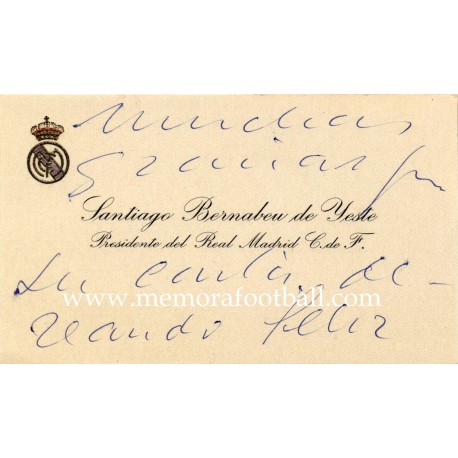 Muchas
gracias por
Santiago Bernabeu de Yeste
Presidente del Real Madrid C. de F.
su carta, de-
www.memorafootball.com
seando feliz